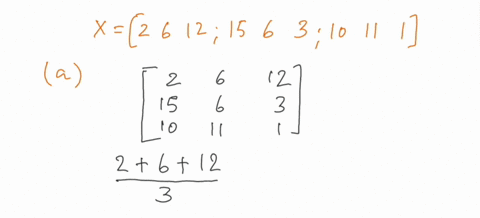 X = [2 6 12 ; 15 6 3 ; 10 11 1]
(a)
[2 6 12
15 6 3
10 11 1]
2 + 6 + 12
3